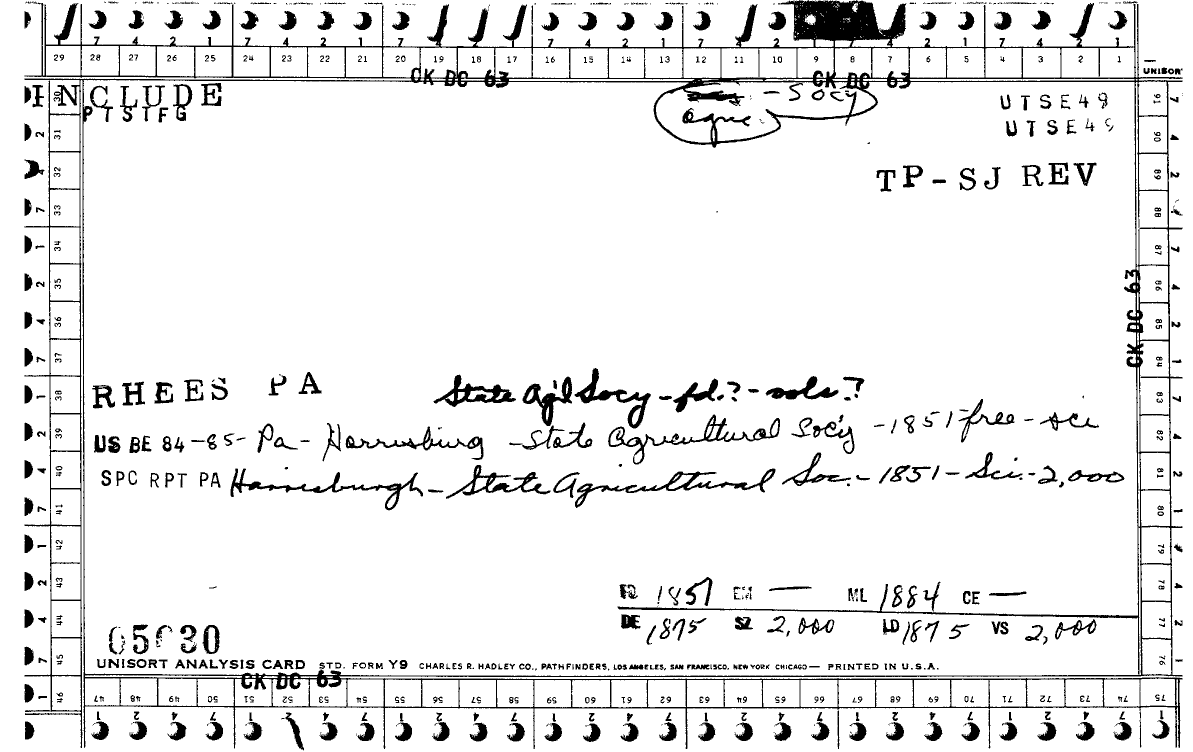 7 4 2 1 7 4 2 1 7 4 2 1 7 4 2 1 7 4 2 1 7 4 2 1 7 4 2 1
29 28 27 26 25 24 23 22 21 20 19 18 17 16 15 14 13 12 11 10 9 8 7 6 5 4 3 2 1
CK DC 63 CK DC 63
UNISORT
INCLUDE
PTSTFG
- Socy
agric.
UTSE48
UTSE48
TP-SJ REV
CK DC 63
RHEES PA State Ag'l Socy - fd.? - vols.?
US BE 84-85- Pa- Harrisburg - State Agricultural Soc'y - 1851-free - sci
SPC RPT PA Harrisburgh - State Agricultural Soc. - 1851 - Sci. - 2,000
FD 1851 EM — ML 1884 CE —
DE 1875 SZ 2,000 LD 1875 VS 2,000
05030
UNISORT ANALYSIS CARD STD. FORM Y9 CHARLES R. HADLEY CO., PATHFINDERS, LOS ANGELES, SAN FRANCISCO, NEW YORK CHICAGO — PRINTED IN U.S.A.
CK DC 63
47 48 49 50 51 52 53 54 55 56 57 58 59 60 61 62 63 64 65 66 67 68 69 70 71 72 73 74 75